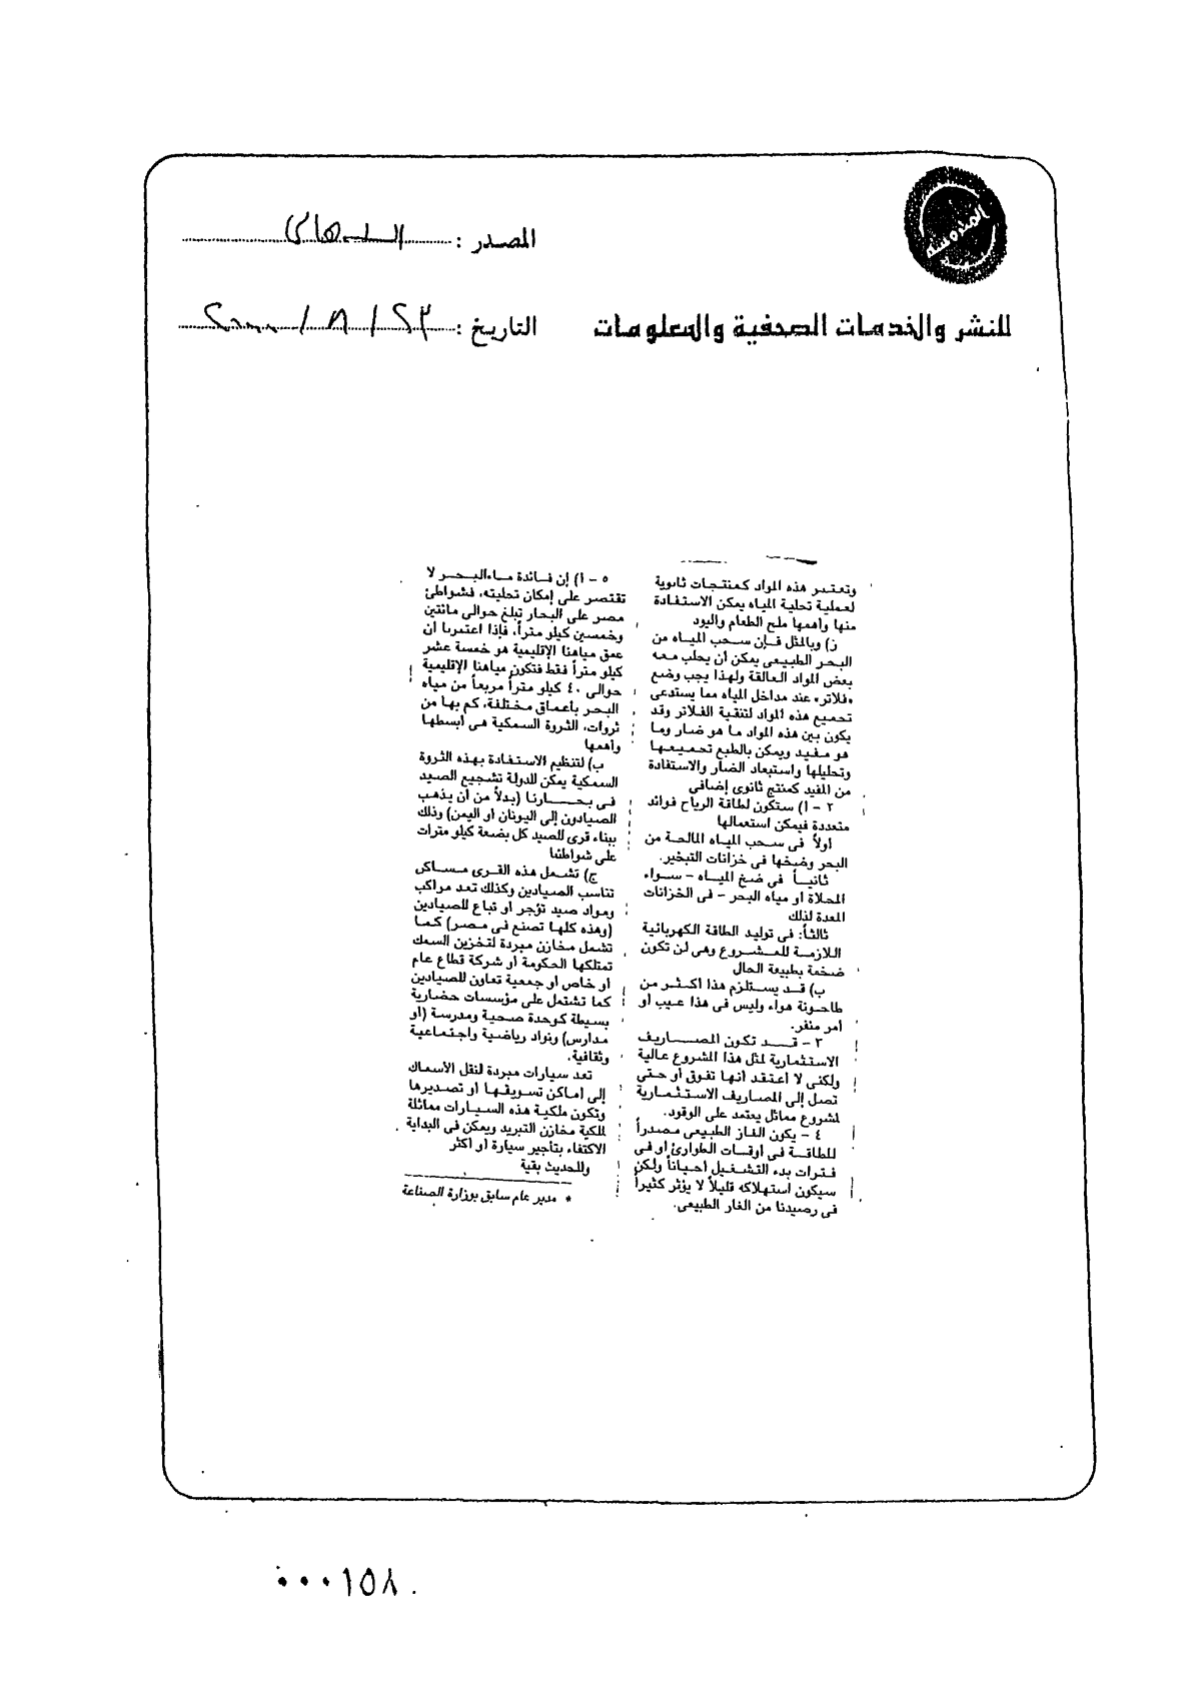 المحروسة
المصدر :
التاريخ : ٢٣ / ٨ / ٢٠٠٠
للنشر والخدمات الصحفية والمعلومات
وتعتبر هذه المواد كمنتجات ثانوية
لعملية تحلية المياه يمكن الاستفادة
منها وأهمها ملح الطعام واليود
ز) وبالمثل فإن سحب المياه من
البحر الطبيعى يمكن أن يجلب معه
بعض المواد العالقة ولهذا يجب وضع
«فلاتر» عند مداخل المياه مما يستدعى
تجميع هذه المواد لتنقية الفلاتر وقد
يكون بين هذه المواد ما هو ضار وما
هو مفيد ويمكن بالطبع تجميعها
وتحليلها واستبعاد الضار والاستفادة
من المفيد كمنتج ثانوى إضافى
٢ - أ) ستكون لطاقة الرياح فوائد
متعددة فيمكن استعمالها
أولاً فى سحب المياه المالحة من
البحر وضخها فى خزانات التبخير.
ثانياً فى ضخ المياه - سواء
المحلاة أو مياه البحر - فى الخزانات
المعدة لذلك
ثالثاً: فى توليد الطاقة الكهربائية
اللازمة للمشروع وهى لن تكون
ضخمة بطبيعة الحال
ب) قد يستلزم هذا أكثر من
طاحونة هواء وليس فى هذا عيب أو
أمر منفر.
٣ - قد تكون المصاريف
الاستثمارية لمثل هذا المشروع عالية
ولكنى لا أعتقد أنها تفوق أو حتى
تصل إلى المصاريف الاستثمارية
لمشروع مماثل يعتمد على الوقود.
٤ - يكون الغاز الطبيعى مصدراً
للطاقة فى أوقات الطوارئ أو فى
فترات بدء التشغيل أحياناً ولكن
سيكون استهلاكه قليلاً لا يؤثر كثيراً
فى رصيدنا من الغاز الطبيعى.
٥ - أ) إن فائدة ماء البحر لا
تقتصر على إمكان تحليته، فشواطئ
مصر على البحار تبلغ حوالى مائتين
وخمسين كيلو متراً، فإذا اعتبرنا أن
عمق مياهنا الإقليمية هو خمسة عشر
كيلو متراً فقط فتكون مياهنا الإقليمية
حوالى ٤٠ كيلو متراً مربعاً من مياه
البحر بأعماق مختلفة، كم بها من
ثروات، الثروة السمكية هى أبسطها
وأهمها
ب) لتنظيم الاستفادة بهذه الثروة
السمكية يمكن للدولة تشجيع الصيد
فى بحارنا (بدلاً من أن يذهب
الصيادون إلى اليونان أو اليمن) وذلك
ببناء قرى للصيد كل بضعة كيلو مترات
على شواطئنا
ج) تشمل هذه القرى مساكن
تناسب الصيادين وكذلك تعد مراكب
ومواد صيد تؤجر أو تباع للصيادين
(وهذه كلها تصنع فى مصر) كما
تشمل مخازن مبردة لتخزين السمك
تمتلكها الحكومة أو شركة قطاع عام
أو خاص أو جمعية تعاون للصيادين
كما تشتمل على مؤسسات حضارية
بسيطة كوحدة صحية ومدرسة (أو
مدارس) ونواد رياضية واجتماعية
وثقافية.
تعد سيارات مبردة لنقل الأسماك
إلى أماكن تسويقها أو تصديرها
وتكون ملكية هذه السيارات مماثلة
لملكية مخازن التبريد ويمكن فى البداية
الاكتفاء بتأجير سيارة أو أكثر
وللحديث بقية
* مدير عام سابق بوزارة الصناعة
٠٠٠١٥٨